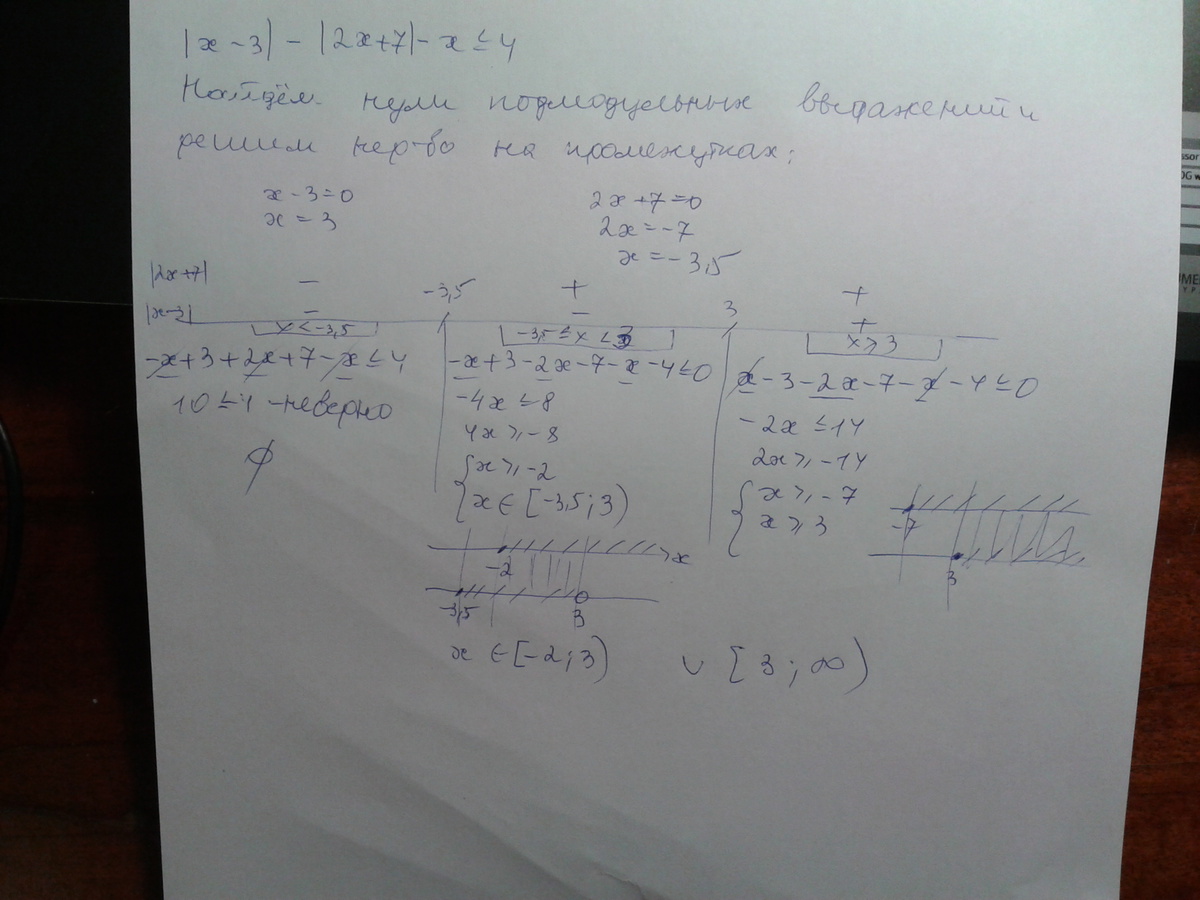 |x-3| - |2x+7| - x ≤ 4
Найдём нули подмодульных выражений и
решим нер-во на промежутках:
x - 3 = 0
x = 3
2x + 7 = 0
2x = -7
x = -3,5
|2x+7| - -3,5 + 3 +
|x-3| - - +
x < -3,5
-x + 3 + 2x + 7 - x ≤ 4
10 ≤ 4 - неверно
∅
-3,5 ≤ x < 3
-x + 3 - 2x - 7 - x - 4 ≤ 0
-4x ≤ 8
4x ≥ -8
x ≥ -2
x ∈ [-3,5; 3)
-2 x
-3,5 3
x ≥ 3
x - 3 - 2x - 7 - x - 4 ≤ 0
-2x ≤ 14
2x ≥ -14
x ≥ -7
x ≥ 3
-7
3
x ∈ [-2; 3) ∪ [3; ∞)